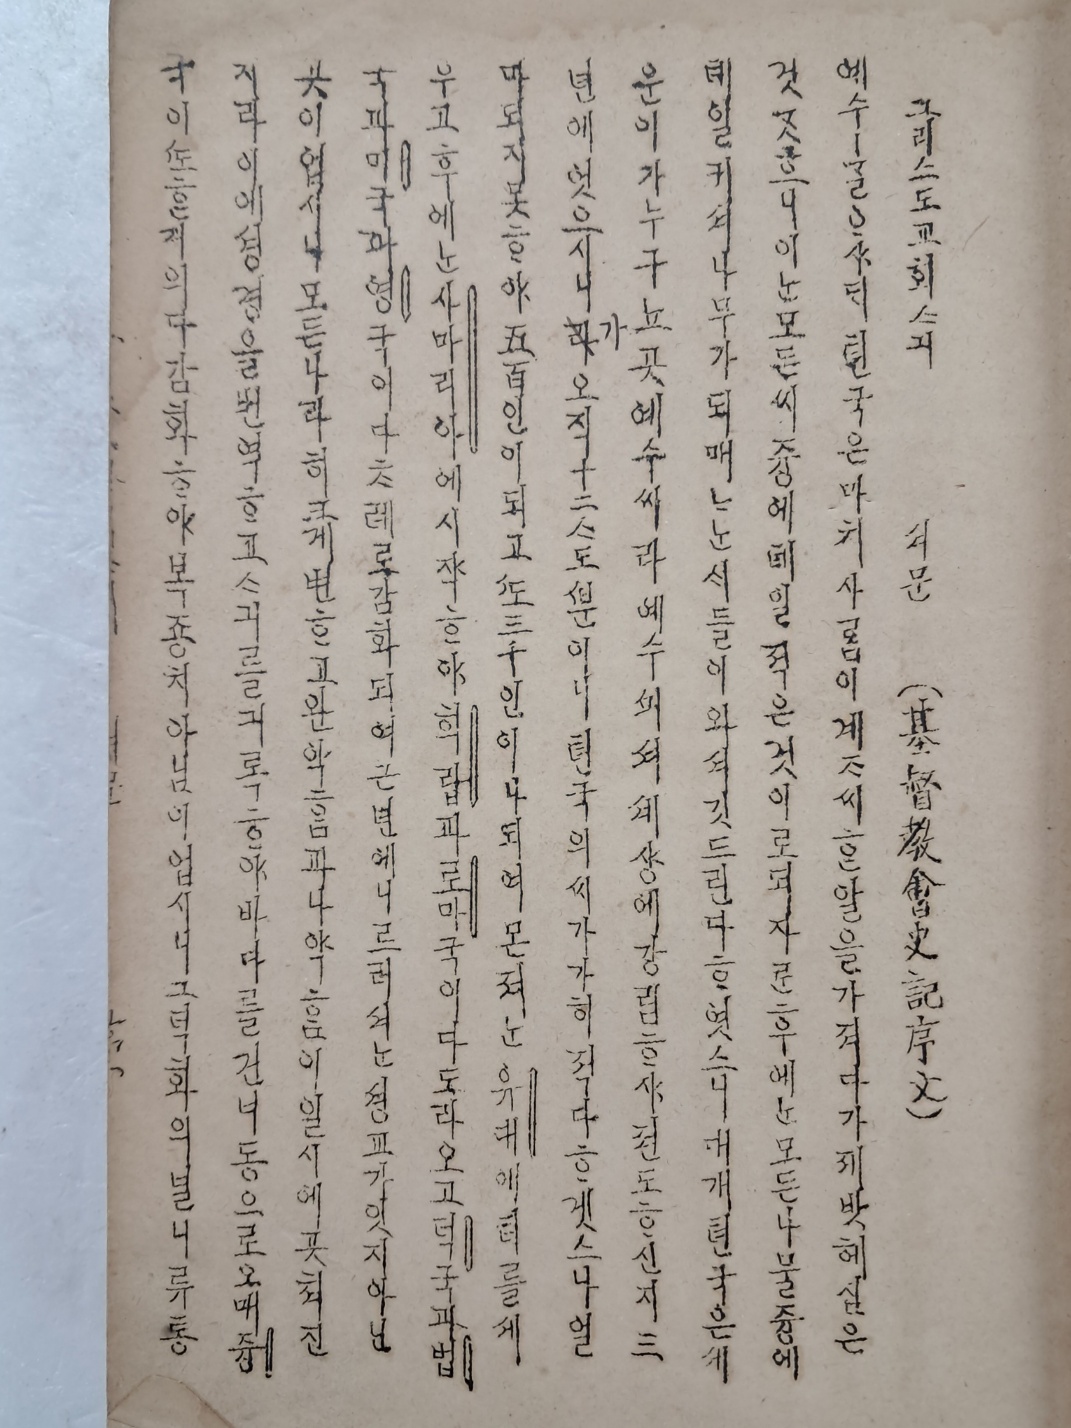 그리스도교회스긔 셔문 (基督教會史記序文)
예수ㅣ 골ᄋᆞ샤ᄃᆡ 텬국은 마치 사ᄅᆞᆷ이 계ᄌᆞ씨 ᄒᆞᆫ 알을 가져다가 제 밧헤 심은
것 ᄀᆞᆺᄒᆞ니 이ᄂᆞᆫ 모든 씨 즁에 뎨일 젹은 것이로ᄃᆡ 자른 후에ᄂᆞᆫ 모든 나물 즁에
뎨일 커셔 나무가 되매 ᄂᆞᄂᆞᆫ 시들이 와셔 깃드린다 ᄒᆞ엿스니 대개 텬국은 세
운 이가 누구뇨 곳 예수씨라 예수ᄭᅴ셔 세상에 강림ᄒᆞ샤 젼도ᄒᆞ신 지 三
년에 엇으시니가 오직 十二ᄉᆞ도ᄲᅮᆫ이니 텬국의 씨가 가히 젹다 ᄒᆞ겟스나 얼
마 되지 못ᄒᆞ야 五百인이 되고 ᄯᅩ 三千인이나 되여 몬져ᄂᆞᆫ 유대에 터를 세
우고 후에ᄂᆞᆫ 사마리아에 시작ᄒᆞ야 희랍과 로마국이 다 도라오고 덕국과 법
국과 미국과 영국이 다 ᄎᆞ례로 감화되여 근년에 니르러셔ᄂᆞᆫ 셩교가 잇지 아닌
곳이 업시니 모든 나라히 크게 변ᄒᆞ고 완악ᄒᆞᆷ과 나약ᄒᆞᆷ이 일시에 곳쳐진
지라 이에 셩경을 번역ᄒᆞ고 ᄉᆞ긔를 긔록ᄒᆞ야 바다를 건너 동으로 오매 즁
국이 ᄯᅩᄒᆞᆫ 져의 다 감화ᄒᆞ야 복죵치 아님이 업시니 그 덕화의 ᄲᆞᆯ니 류통